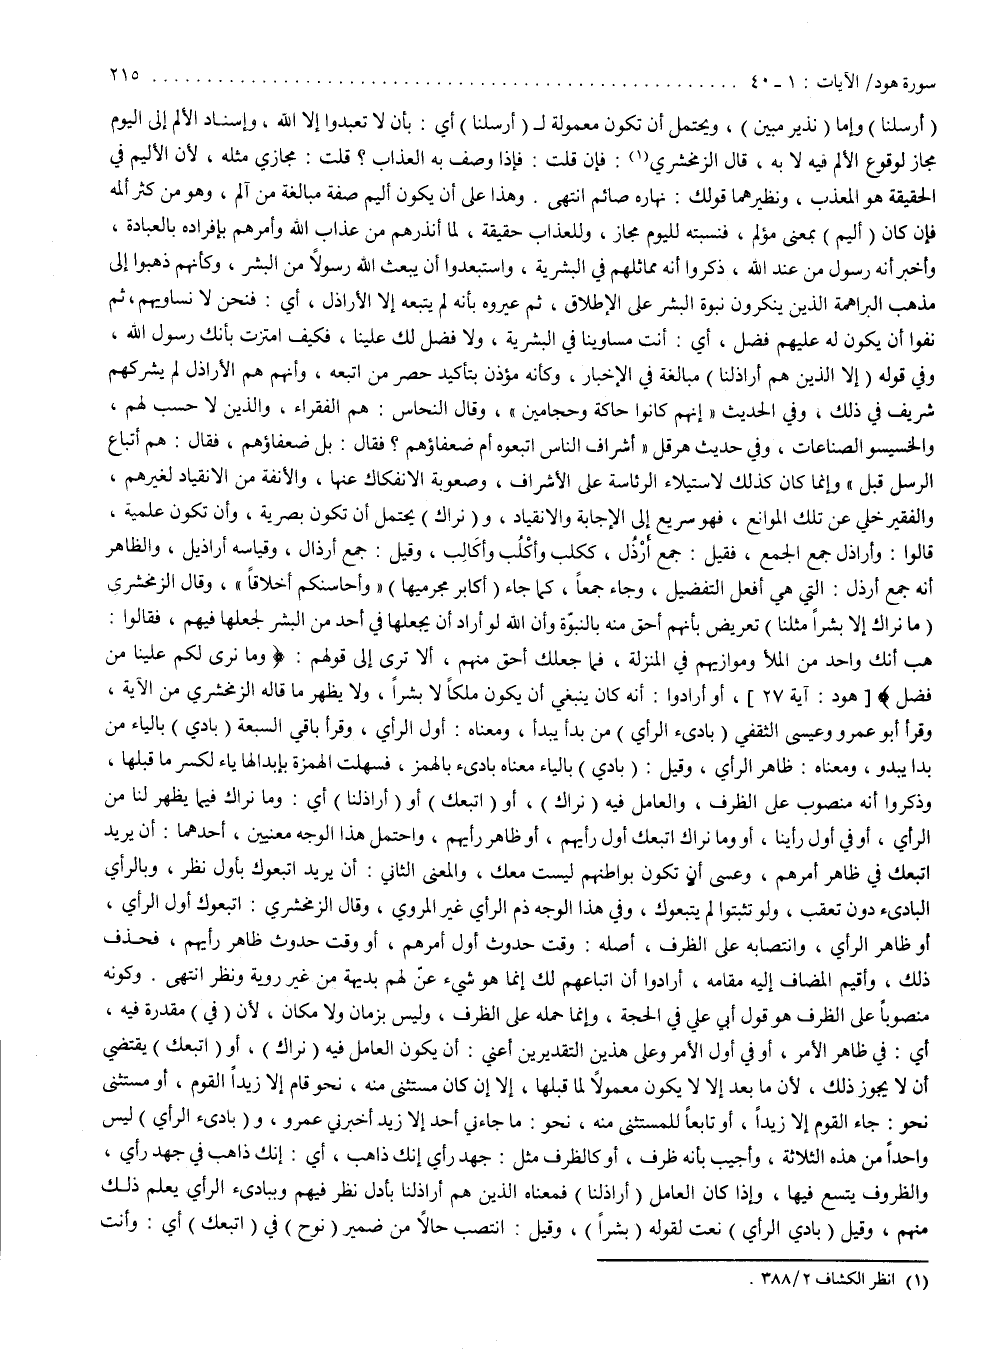 سورة هود/ الآيات : ١ - ٤٠ ................................................ ٢١٥
( أرسلنا ) وإما ( نذير مبين ) ، ويحتمل أن تكون معمولة لـ ( أرسلنا ) أي : بأن لا تعبدوا إلا الله ، وإسناد الألم إلى اليوم
مجاز لوقوع الألم فيه لا به ، قال الزمخشري(١) : فإن قلت : فإذا وصف به العذاب ؟ قلت : مجازي مثله ، لأن الأليم في
الحقيقة هو المعذب ، ونظيرهما قولك : نهاره صائم انتهى . وهذا على أن يكون أليم صفة مبالغة من آلم ، وهو من كثر ألمه
فإن كان ( أليم ) بمعنى مؤلم ، فنسبته لليوم مجاز ، وللعذاب حقيقة ، لما أنذرهم من عذاب الله وأمرهم بإفراده بالعبادة ،
وأخبر أنه رسول من عند الله ، ذكروا أنه مماثلهم في البشرية ، واستبعدوا أن يبعث الله رسولاً من البشر ، وكأنهم ذهبوا إلى
مذهب البراهمة الذين ينكرون نبوة البشر على الإطلاق ، ثم عيروه بأنه لم يتبعه إلا الأراذل ، أي : فنحن لا نساويهم ، ثم
نفوا أن يكون له عليهم فضل ، أي : أنت مساوينا في البشرية ، ولا فضل لك علينا ، فكيف امتزت بأنك رسول الله ،
وفي قوله ( إلا الذين هم أراذلنا ) مبالغة في الإخبار ، وكأنه مؤذن بتأكيد حصر من اتبعه ، وأنهم هم الأراذل لم يشركهم
شريف في ذلك ، وفي الحديث « إنهم كانوا حاكة وحجامين » ، وقال النحاس : هم الفقراء ، والذين لا حسب لهم ،
والخسيسو الصناعات ، وفي حديث هرقل « أشراف الناس اتبعوه أم ضعفاؤهم ؟ فقال : بل ضعفاؤهم ، فقال : هم أتباع
الرسل قبل » وإنما كان كذلك لاستيلاء الرئاسة على الأشراف ، وصعوبة الانفكاك عنها ، والأنفة من الانقياد لغيرهم ،
والفقير خلي عن تلك الموانع ، فهو سريع إلى الإجابة والانقياد ، و( نراك ) يحتمل أن تكون بصرية ، وأن تكون علمية ،
قالوا : وأراذل جمع الجمع ، فقيل : جمع أرْذُل ، ككلب وأكْلُب وأكَالِب ، وقيل : جمع أرذال ، وقياسه أراذيل ، والظاهر
أنه جمع أرذل : التي هي أفعل التفضيل ، وجاء جمعاً ، كما جاء ( أكابر مجرميها ) « وأحاسنكم أخلاقاً » ، وقال الزمخشري
( ما نراك إلا بشراً مثلنا ) تعريض بأنهم أحق منه بالنبوّة وأن الله لو أراد أن يجعلها في أحد من البشر لجعلها فيهم ، فقالوا :
هب أنك واحد من الملأ وموازيهم في المنزلة ، فما جعلك أحق منهم ، ألا ترى إلى قولهم : ﴿ وما نرى لكم علينا من
فضل ﴾ [ هود : آية ٢٧ ] ، أو أرادوا : أنه كان ينبغي أن يكون ملكاً لا بشراً ، ولا يظهر ما قاله الزمخشري من الآية ،
وقرأ أبو عمرو وعيسى الثقفي ( بادىء الرأي ) من بدأ يبدأ ، ومعناه : أول الرأي ، وقرأ باقي السبعة ( بادي ) بالياء من
بدا يبدو ، ومعناه : ظاهر الرأي ، وقيل : ( بادي ) بالياء معناه بادىء بالهمز ، فسهلت الهمزة بإبدالها ياء لكسر ما قبلها ،
وذكروا أنه منصوب على الظرف ، والعامل فيه ( نراك ) ، أو ( اتبعك ) أو ( أراذلنا ) أي : وما نراك فيما يظهر لنا من
الرأي ، أو في أول رأينا ، أو وما نراك اتبعك أول رأيهم ، أو ظاهر رأيهم ، واحتمل هذا الوجه معنيين ، أحدهما : أن يريد
اتبعك في ظاهر أمرهم ، وعسى أن تكون بواطنهم ليست معك ، والمعنى الثاني : أن يريد اتبعوك بأول نظر ، وبالرأي
البادىء دون تعقب ، ولو تثبتوا لم يتبعوك ، وفي هذا الوجه ذم الرأي غير المروي ، وقال الزمخشري : اتبعوك أول الرأي ،
أو ظاهر الرأي ، وانتصابه على الظرف ، أصله : وقت حدوث أول أمرهم ، أو وقت حدوث ظاهر رأيهم ، فحذف
ذلك ، وأقيم المضاف إليه مقامه ، أرادوا أن اتباعهم لك إنما هو شيء عنّ لهم بديهة من غير روية ونظر انتهى . وكونه
منصوباً على الظرف هو قول أبي علي في الحجة ، وإنما حمله على الظرف ، وليس بزمان ولا مكان ، لأن ( في ) مقدرة فيه ،
أي : في ظاهر الأمر ، أو في أول الأمر وعلى هذين التقديرين أعني : أن يكون العامل فيه ( نراك ) ، أو ( اتبعك ) يقتضي
أن لا يجوز ذلك ، لأن ما بعد إلا لا يكون معمولاً لما قبلها ، إلا إن كان مستثنى منه ، نحو قام إلا زيداً القوم ، أو مستثنى
نحو : جاء القوم إلا زيداً ، أو تابعاً للمستثنى منه ، نحو : ما جاءني أحد إلا زيد أخبرني عمرو ، و( بادىء الرأي ) ليس
واحداً من هذه الثلاثة ، وأجيب بأنه ظرف ، أو كالظرف مثل : جهد رأي إنك ذاهب ، أي : إنك ذاهب في جهد رأي ،
والظروف يتسع فيها ، وإذا كان العامل ( أراذلنا ) فمعناه الذين هم أراذلنا بأدل نظر فيهم وببادىء الرأي يعلم ذلك
منهم ، وقيل ( بادي الرأي ) نعت لقوله ( بشراً ) ، وقيل : انتصب حالاً من ضمير ( نوح ) في ( اتبعك ) أي : وأنت
(١) انظر الكشاف ٣٨٨/٢ .